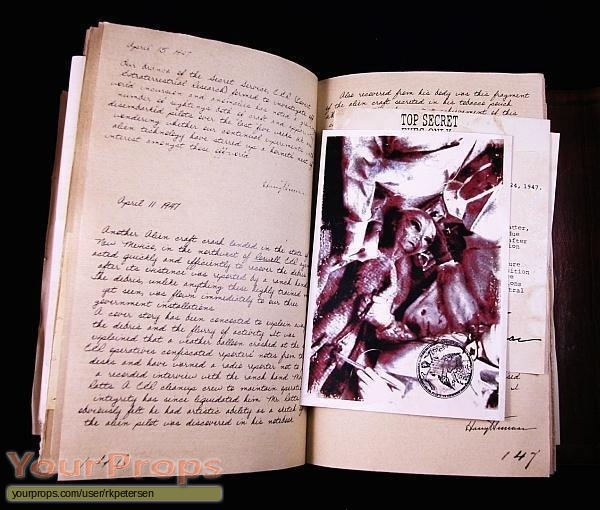 April 15 1947
Our division of the Secret Service, CdR (Covert
Extraterrestrial Research) formed to investigate off
world incursion and anomalies has noted a
number of sightings both of craft and
disembarked pilots over the last five weeks. We are
wondering whether our continued experiments with
alien technology have stirred up a hornets nest of
interest amongst these off-world
Harry Truman
April 11 1947
Another Alien craft crash landed in the state of
New Mexico, in the northwest of Roswell. CdR
acted quickly and efficiently to recover the debris
after its existence was reported by a ranch hand
The debris, unlike anything these highly trained
yet seen, was flown immediately to our three
government installations.
A cover story has been concocted to explain away
the debris and the flurry of activity. It was
explained that a weather balloon crashed at the
CdR operatives confiscated reporters' notes from their
desks and have warned a radio reporter not to
a recorded interview with the ranch hand Mr.
Ratta. A CdR cleanup crew to maintain operational
integrity has since liquidated him. Mr Ratta
obviously felt he had artistic ability as a sketch of
the alien pilot was discovered in his notebook
Also recovered from his body was this fragment
of the alien craft secreted in his tobacco pouch
of this
TOP SECRET
EYES ONLY
24, 1947.
atter,
due
after
tion
ure
dition
e
ions
tral
Harry Truman
147
YourProps
yourprops.com/user/rkpetersen